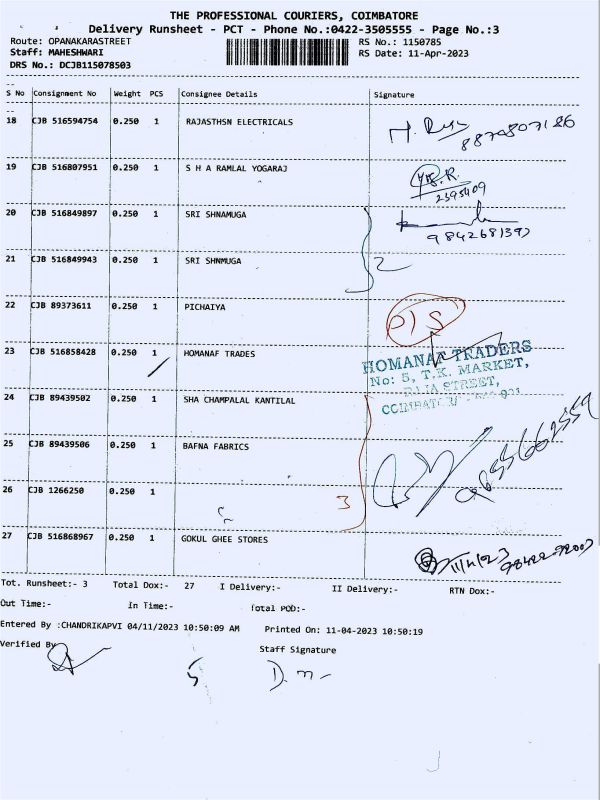 THE PROFESSIONAL COURIERS, COIMBATORE
Delivery Runsheet - PCT - Phone No.:0422-3505555 - Page No.:3
Route: OPANAKARASTREET
Staff: MAHESHWARI
DRS No.: DCJB115078503
RS No.: 1150785
RS Date: 11-Apr-2023
S No Consignment No Weight PCS Consignee Details Signature
18 CJB 516594754 0.250 1 RAJASTHSN ELECTRICALS
8870807186
19 CJB 516807951 0.250 1 S H A RAMLAL YOGARAJ
2395409
20 CJB 516849897 0.250 1 SRI SHNAMUGA
9842681393
21 CJB 516849943 0.250 1 SRI SHNMUGA
2
22 CJB 89373611 0.250 1 PICHAIYA
D/S
23 CJB 516858428 0.250 1 HOMANAF TRADES
HOMANAF TRADERS
No: 5, T.K. MARKET,
RAJA STREET,
24 CJB 89439502 0.250 1 SHA CHAMPALAL KANTILAL
25 CJB 89439506 0.250 1 BAFNA FABRICS
26 CJB 1266250 0.250 1
3
27 CJB 516868967 0.250 1 GOKUL GHEE STORES
11/4/23
Tot. Runsheet:- 3 Total Dox:- 27 I Delivery:- II Delivery:- RTN Dox:-
Out Time:- In Time:- Total POD:-
Entered By :CHANDRIKAPVI 04/11/2023 10:50:09 AM Printed On: 11-04-2023 10:50:19
Verified By
Staff Signature